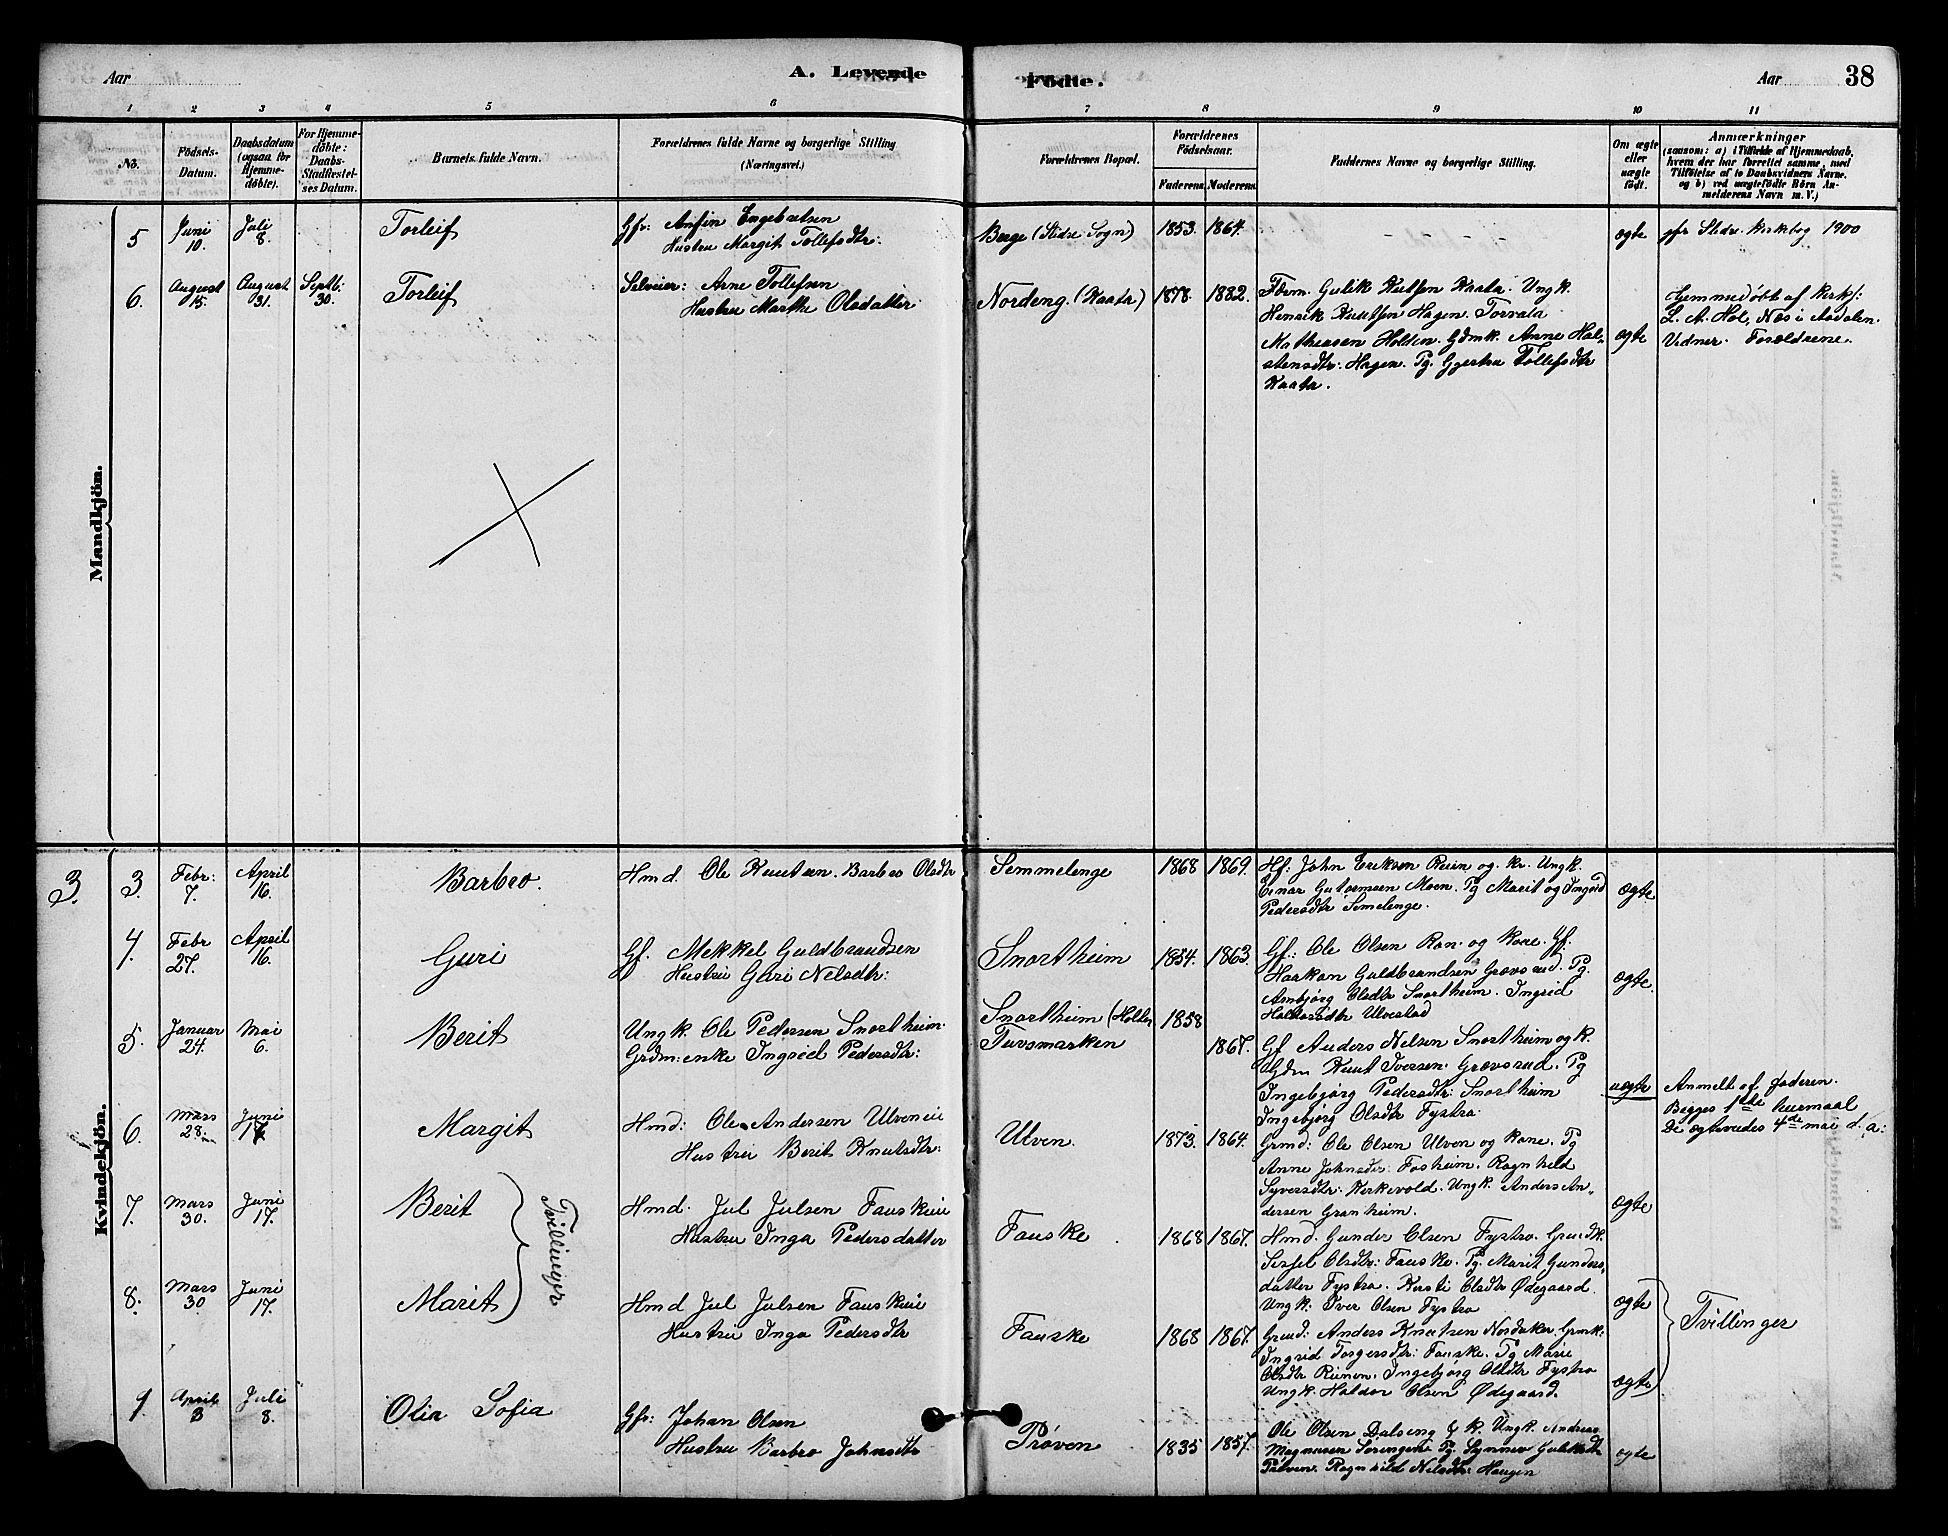 Aar
A. Levende
Födte.
Aar 38
1 2 3 4 5 6 7 8 9 10 11
No.
Födsels-Datum.
Daabsdatum (ogsaa for Hjemme-döbte).
For Hjemme-döbte: Daabs-Stadfæstel-ses Datum.
Barnets fulde Navn.
Forældrenes fulde Navne og borgerlige Stilling (Næringsvei.)
Forældrenes Bopæl.
Forældrenes Födselsaar.
Faderens. Moderens.
Faddernes Navne og borgerlige Stilling.
Om ægte eller uægte födt.
Anmærkninger
(saasom: a) i Tilfælde af Hjemmedaab,
hvem der har forrettet samme, med
Tilföielse af to Daabsvidners Navne,
og b) ved uægtefödte Börn An-
melderens Navn m. V.)
Mandkjön.
5 Juni 10. Juli 8. Torleif
Gfr: Anfin Engebretsen
Hustru Margit Tollefsdtr:
Berge (Slidre Sogn) 1853. 1864.
ægte
jfr Slidre Kirkebog 1900
6. August 15. August 31. Septb: 30. Torleif
Selveier: Arne Tollefsen
Hustru Marthe Olsdatter
Nordeng. (Kaata) 1878. 1882.
Fdrm. Gulik Knutsen Kaata. Ungk.
Henrik Knutsen Hagen. Torvald
Mathiasen Holden. Gdmk. Anne Hal-
stensdtr: Hagen. Pg. Gjertru Tollefsdtr
Kaata.
ægte
Hjemmedøbt af Kirks:
L. A. Hol, Næs i Aadalen.
Vidner: Forældrene.
Kvindekjön.
3.
3 Febr: 7. April 16. Barbro.
Hmd. Ole Knutsen. Barbro Olsdtr
Semmelenge 1868 1869.
Hf: John Eriksen Reien og Kr. Ungk.
Einar Guttormsen Moen. Pg Marit og Ingrid
Pedersdtr Semelenge.
ægte
4. Febr 27. April 16. Guri
Gf. Mekkel Guldbrandsen
Hustru Guri Nelsdtr:
Snortheim 1854. 1863.
Gf.: Ole Olsen Ron. og Kone. Gf.
Haakon Guldbrandsen Grøvsrud. Pg.
Arnbjørg Olsdtr Snortheim. Ingrid
Haldorsdtr Ulvestad
ægte.
5. Januar 24. Mai 6. Berit
Ungk. Ole Pedersen Snortheim.
Grdm: enke Ingrid Pedersdtr:
Snortheim (Holte) 1858
Tuvsmarken 1867.
Gf. Anders Nelsen Snortheim og K.
Gdm Knut Iversen. Grøvsrud. Pg
Ingebjørg Pedersdtr: Snortheim
Ingebjørg Olsdtr Fystro.
uægte
Anmeldt af faderen.
Begges 1ste leiermaal
De ægteviedes 4de mai d. a:
6. Mars 28. Juni 17. Margit
Hmd: Ole Andersen Ulveneie
Hustru Berit Knutsdtr:
Ulven. 1873. 1864.
Grmd: Ole Olsen Ulven og kone. Pg
Anne Johnsdtr: Fosheim. Ragnhild
Syversdtr: Kirkevold. Ungk. Anders An-
dersen Granheim.
ægte
7. Mars 30. Juni 17. Berit
Tvillinger
Hmd. Jul Julsen Fauskeie
Hustru Inga Pedersdatter
Fauske. 1868 1867.
Hmd. Gunder Olsen Fystro. Grmdk.
Sissel Olsdtr: Fauske. Pg. Marit Gunders-
datter Fystro. Kersti Olsdtr Ødegaard.
Ungk: Iver Olsen Fystro
ægte
8. Mars 30 Juni 17. Marit
Hmd Jul Julsen Fauskeie
Hustru Inga Pedersdtr
Fauske 1868 1867
Grmd: Anders Knutsen Nordaker. Grmk:
Ingrid Torgersdtr: Fauske. Pg Marie
Olsdtr Rienen. Ingebjørg Olsdtr Fystro
Ungk. Haldor Olsen Ødegaard.
ægte
Tvillinger
9. April 3 Juli 8. Olia Sofia
Gfr: Johan Olsen
Hustru Barbro Johnsdtr
Prøven 1835 1857.
Ole Olsen Dalseng & K. Ungk. Andreas
Magnusen Sørengene Pg. Synnøv Guliksdtr
Prøven. Ragnhild Nelsdtr: Haugen
ægte